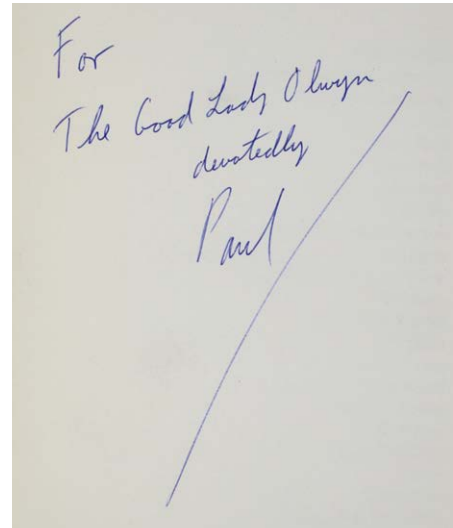 For
The Good Lady Olwyn
devotedly
Paul